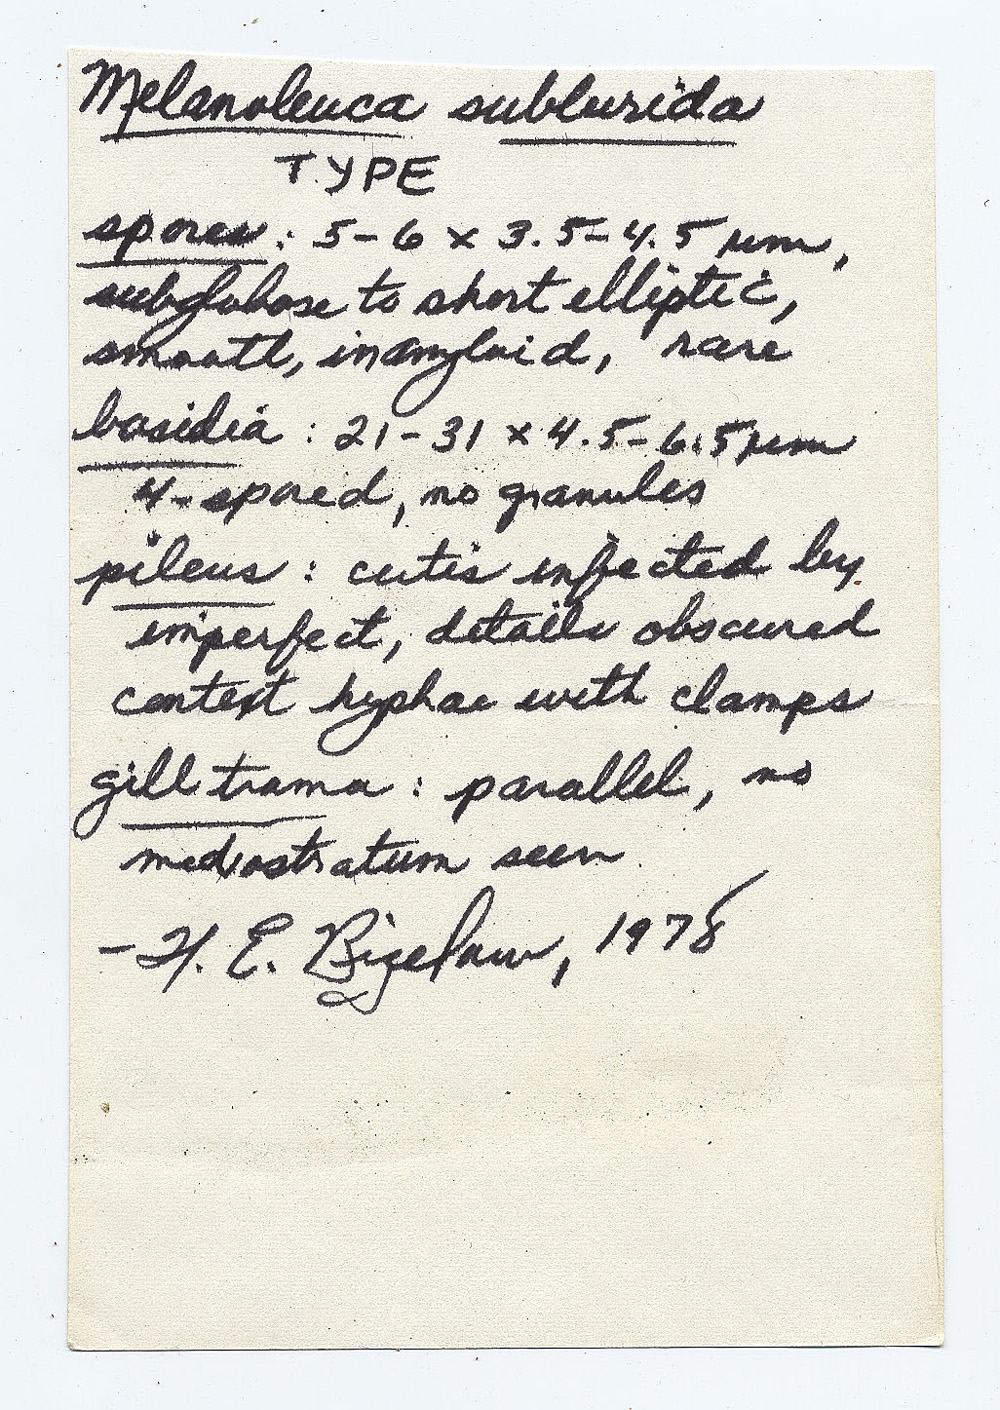 Melanoleuca sublurida
TYPE
spores: 5-6 x 3.5-4.5 µm,
subglobose to short elliptic,
smooth, inamyloid, rare
basidia: 21-31 x 4.5-6.5 µm
4-spored, no granules
pileus: cutis infected by
imperfect, details obscured
context hyphae with clamps
gill trama: parallel, no
mediostratum seen
- H. E. Bigelow, 1978